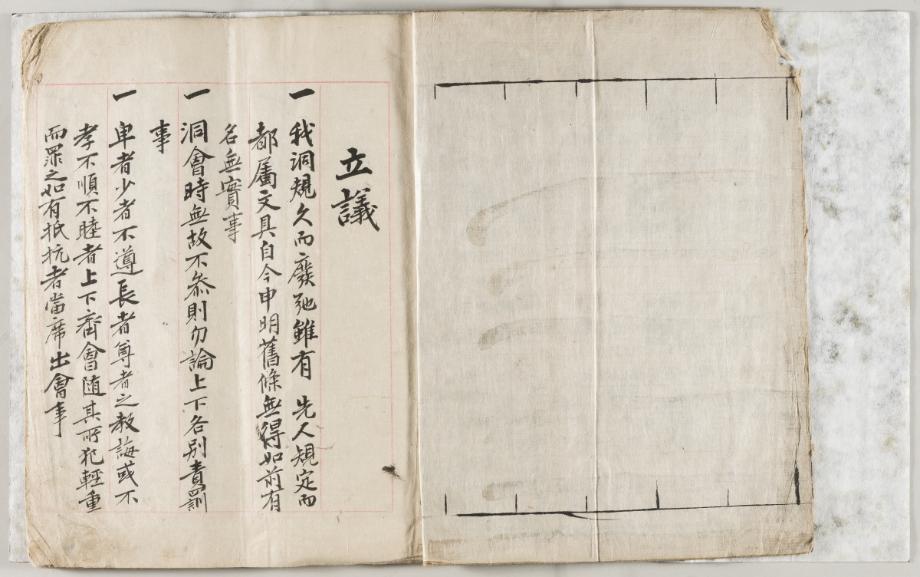 立議
一 我洞規久而廢弛雖有 先人規定而
都属文具自今申明舊條無得如前有
名無實事
一 洞會時無故不叅則勿論上下各別責罰
事
一 卑者少者不遵長者尊者之教誨或不
孝不順不睦者上下齊會随其所犯輕重
而罪之如有抵抗者當席出會事